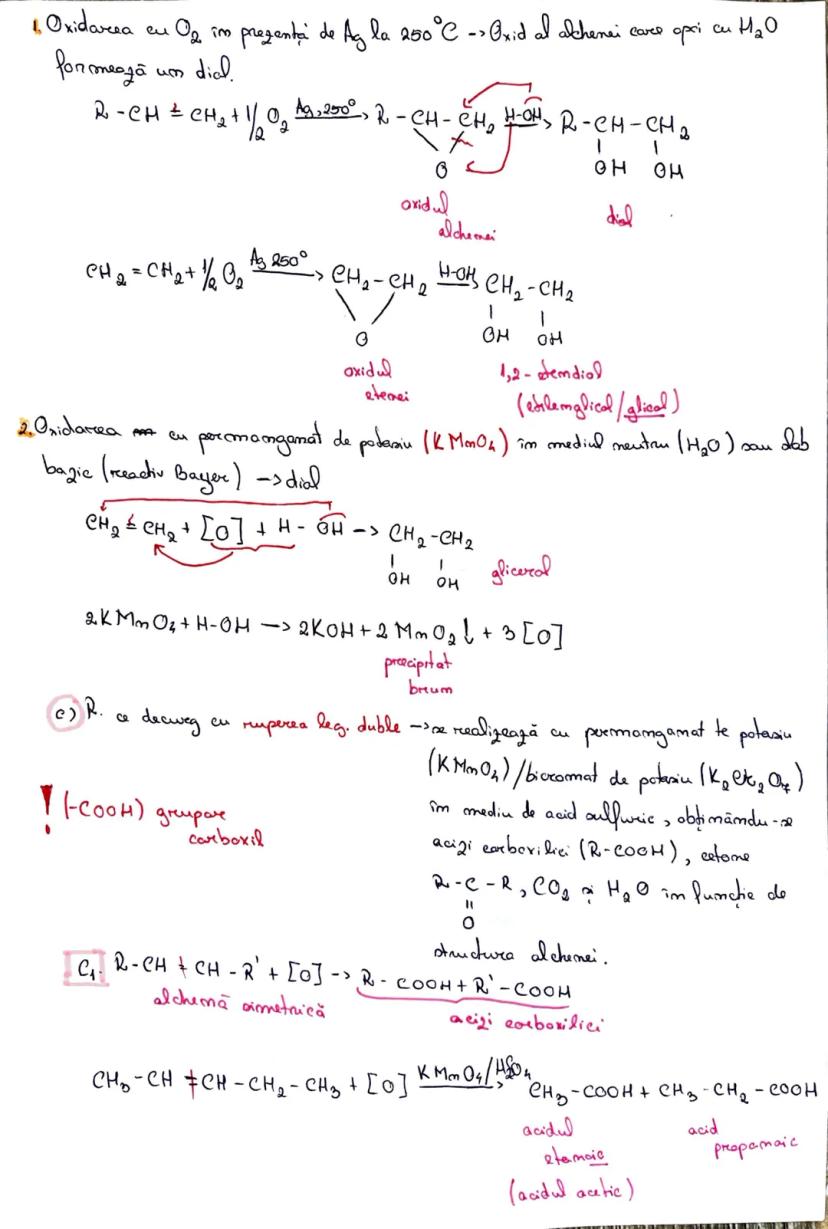 1. Oxidarea cu O2 în prezență de Ag la 250°C -> Oxid al alchenei care apoi cu H2O
formează un diol.
R - CH = CH2 + 1/2 O2 Ag, 250° → R - CH - CH2 H-OH → R - CH - CH2
O OH OH
oxidul alchenei diol
CH2 = CH2 + 1/2 O2 Ag 250° → CH2 - CH2 H-OH → CH2 - CH2
O OH OH
oxidul etenei 1,2 - etendiol
(etilenglicol/glicol)
2. Oxidarea cu permanganat de potasiu (KMnO4) în mediul neutru (H2O) sau slab
bazic (reactiv Bayer) -> diol
CH2 = CH2 + [O] + H - OH -> CH2 - CH2
OH OH glicerol
2KMnO4 + H-OH -> 2KOH + 2MnO2↓ + 3[O]
precipitat
brun
c) R. ce decurg cu ruperea leg. duble -> se realizează cu permangamat te potasiu
(KMnO4)/bicromat de potasiu (K2Cr2O7)
în mediu de acid sulfuric, obținându-se
! (-COOH) grupare
carboxil
acizi carboxilici (R-COOH), cetone
R - C - R, CO2 și H2O în funcție de
O
structura alchenei.
C1. R-CH = CH - R' + [O] -> R - COOH + R' - COOH
alchenă simetrică acizi carboxilici
CH3 - CH = CH - CH2 - CH3 + [O] KMnO4/H2SO4 → CH3 - COOH + CH3 - CH2 - COOH
acidul acid
etanoic propanoic
(acidul acetic)